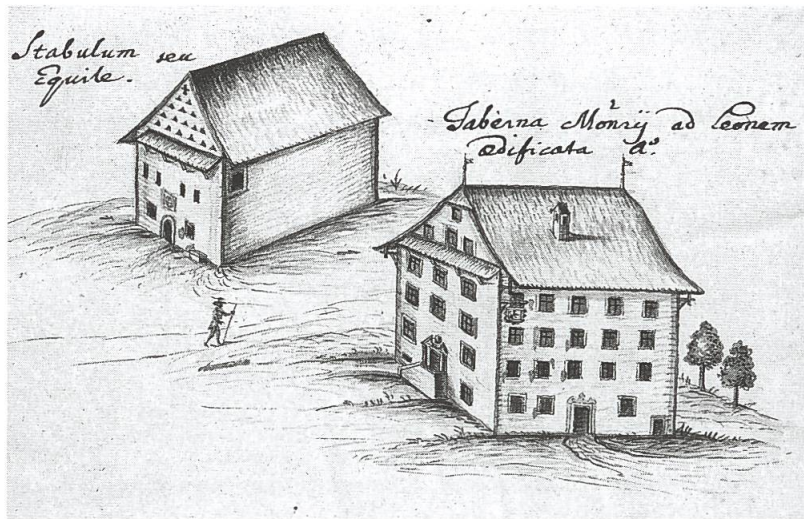 Stabulum seu
Equile.
Taberna Monrÿ ad Leonem
ædificata Aº.